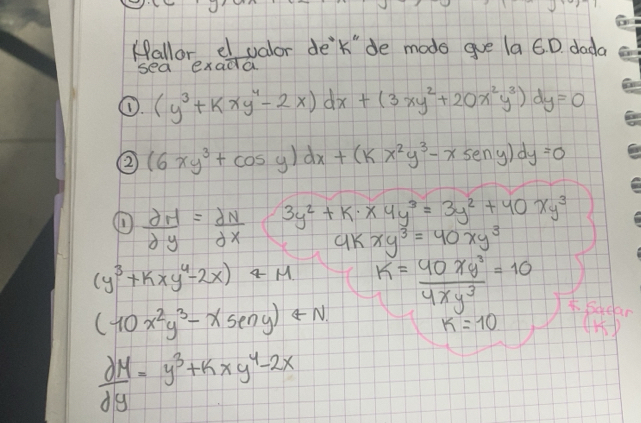 Hallar el valor de "K" de modo que la E.D. dada
sea exacta
①. (y³ + Kxy⁴ - 2x) dx + (3xy² + 20x²y³) dy = 0
② (6xy³ + cos y) dx + (K x²y³ - x sen y) dy = 0
① ∂M/∂y = ∂N/∂x
3y² + K·x 4y³ = 3y² + 40 xy³
4Kxy³ = 40xy³
K = 40xy³/4xy³ = 10
K = 10
← Sacar
(K)
(y³ + Kxy⁴ - 2x) ← M.
(10x²y³ - x sen y) ← N.
∂M/∂y = y³ + Kxy⁴ - 2x